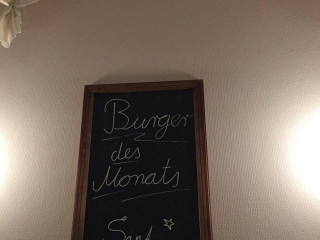 Burger
des
Monats